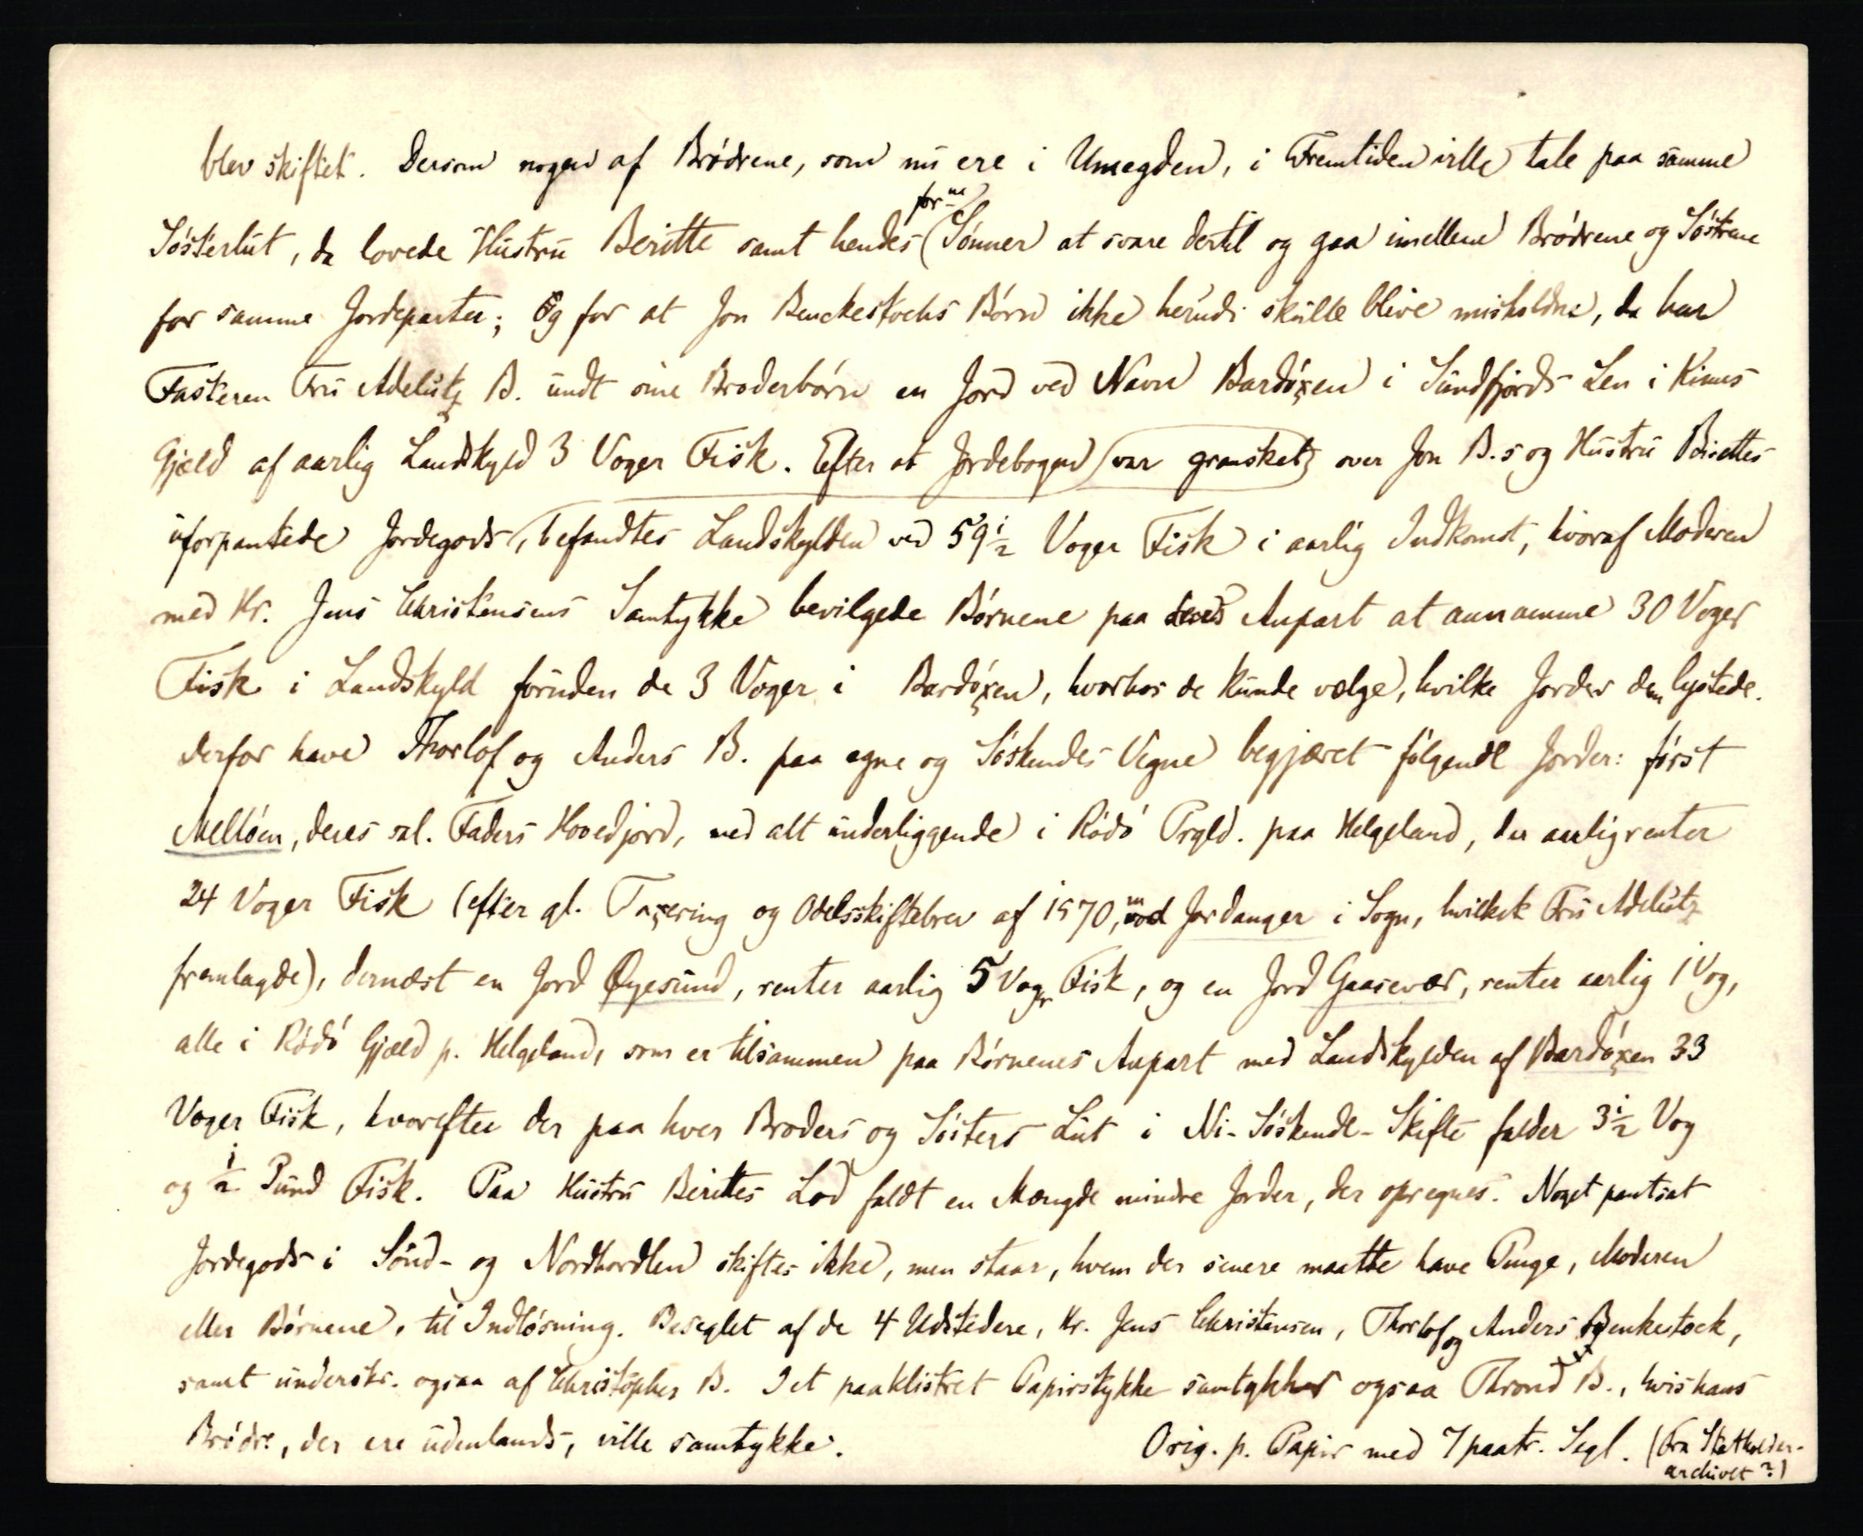 blev skiftet. Dersom nogen af Brødrene, som nu ere i Umegden, i Fremtiden ville tale paa samme
Søsterlut, da lovede Hustru Beritte samt hendes (for^ne) Sønner at svare dertil og gaa imellem Brødrene og Søstrene
for samme Jordeparter; og for at Jon Benckestochs Børn ikke herudi skulle blive misholdne, da har
Fasteren Fru Adelutz B. undt sine Broderbørn en Jord ved Navn Bardøxen i Sundfjords Len i Kinns
Gjæld af aarlig Landskyld 3 Voger Fisk. Efter at Jordebogen (var gransket) over Jon B.s og Hustru Berittes
uforpantede Jordegods, befandtes Landskylden ved 59½ Voger Fisk i aarlig Indkomst, hvoraf Moderen
med Hr. Jens Christensens Samtykke bevilgede Børnene paa deres Anpart at annamme 30 Voger
Fisk i Landskyld foruden de 3 Voger i Bardøxen, hvorhos de kunde vælge, hvilke Jorder dem lystede.
Derfor have Thorlof og Anders B. paa egne og Søskendes Vegne begjæret følgende Jorder: først
Melløen, deres sal. Faders Hovedjord, med alt underliggende i Rødø Prgld. paa Helgeland, der aarlig renter
24 Voger Fisk (efter gl. Taxering og Odelsskiftebrev af 1570, m Jordanger i Sogn, hvilket Fru Adelutz
fremlagde), dernæst en Jord Øyesund, renter aarlig 5 Voger Fisk, og en Jord Gaasevær, renter aarlig 1 Vog,
alle i Rødø Gjæld p. Helgeland, som er tilsammen paa Børnenes Anpart med Landskylden af Bardøxen 33
Voger Fisk, hvorefter der paa hver Broders og Søsters Lut i Ni-Søskende-Skifte falder 3½ Vog
og ½ Pund Fisk. Paa Hustru Berittes Lod faldt en Mængde mindre Jorder, der opregnes. Noget pantsat
Jordegods i Sønd- og Nordhordlen skiftes ikke, men staar, hvem der senere maatte have Penge, Moderen
eller Børnene, til Indløsning. Beseglet af de 4 Udstedere, Hr. Jens Christensen, Thorlof og Anders Benkestock,
samt underskr. ogsaa af Christopher B. I et paaklistret Papirstykke samtykker ogsaa Thrond B., hvis hans
Brødre, der ere udenlands, ville samtykke. Orig. p. Papir med 7 paatr. Segl. (Fra Statholder-
archivet?)